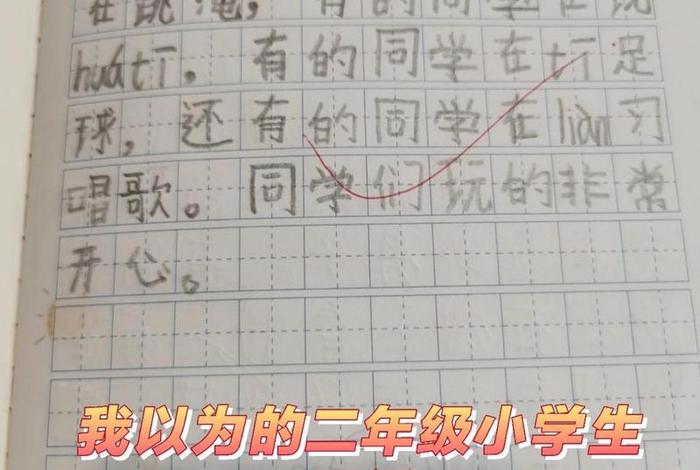 在跳绳，有的同学在玩
huátī，有的同学在tī足
球，还有的同学在liàn习
唱歌。同学们玩的非常
开心。
我以为的二年级小学生